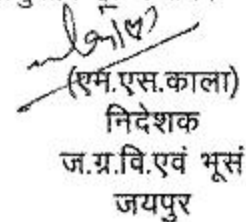 (एम.एस.काला)
निदेशक
ज.ग्र.वि.एवं भूसं
जयपुर